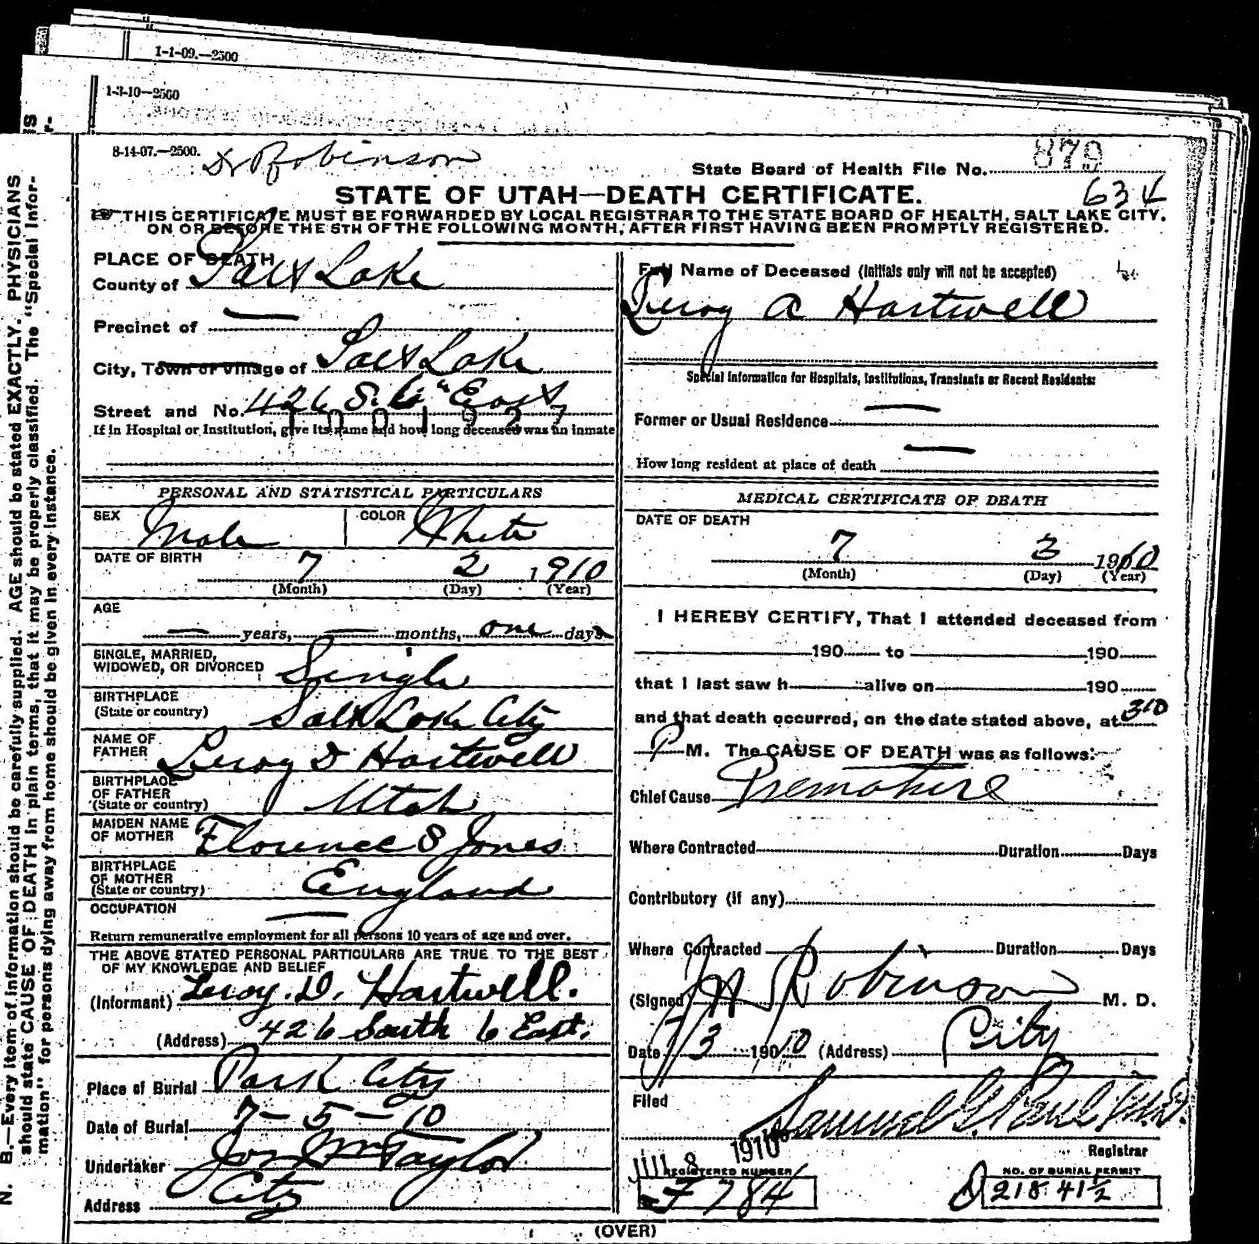 1-1-09.—2500
1-3-10—2500
8-14-07.—2500.
Dr Robinson
State Board of Health File No. 879
634
STATE OF UTAH—DEATH CERTIFICATE.
THIS CERTIFICATE MUST BE FORWARDED BY LOCAL REGISTRAR TO THE STATE BOARD OF HEALTH, SALT LAKE CITY,
ON OR BEFORE THE 5TH OF THE FOLLOWING MONTH, AFTER FIRST HAVING BEEN PROMPTLY REGISTERED.
PLACE OF DEATH
County of Salt Lake
Precinct of —
City, Town or Village of Salt Lake
Street and No. 426 S. 6" East
1001927
If in Hospital or Institution, give its name and how long deceased was an inmate
PERSONAL AND STATISTICAL PARTICULARS
SEX Male COLOR White
DATE OF BIRTH 7 2 1910
(Month) (Day) (Year)
AGE
— years, — months, one days
SINGLE, MARRIED,
WIDOWED, OR DIVORCED Single
BIRTHPLACE
(State or country) Salt Lake City
NAME OF
FATHER Leroy D Hartwell
BIRTHPLACE
OF FATHER
(State or country) Utah
MAIDEN NAME
OF MOTHER Florence S Jones
BIRTHPLACE
OF MOTHER
(State or country) England
OCCUPATION —
Return remunerative employment for all persons 10 years of age and over.
THE ABOVE STATED PERSONAL PARTICULARS ARE TRUE TO THE BEST
OF MY KNOWLEDGE AND BELIEF
(Informant) Leroy. D. Hartwell.
(Address) 426 South 6 East.
Place of Burial Park City
Date of Burial 7-5-10
Undertaker Jos Wm Taylor
Address City
Full Name of Deceased (Initials only will not be accepted)
Leroy A Hartwell
Special Information for Hospitals, Institutions, Transients or Recent Residents:
Former or Usual Residence —
How long resident at place of death —
MEDICAL CERTIFICATE OF DEATH
DATE OF DEATH
7 3 1910
(Month) (Day) (Year)
I HEREBY CERTIFY, That I attended deceased from
190 to 190
that I last saw h alive on 190
and that death occurred, on the date stated above, at 310
P M. The CAUSE OF DEATH was as follows:
Chief Cause Premature
Where Contracted Duration Days
Contributory (if any)
Where Contracted Duration Days
(Signed) J A Robinson M. D.
Date 7/3 1910 (Address) City
Filed
Samuel G. Paul M.D.
Registrar
JUL 8 1910
REGISTERED NUMBER
F 784
NO. OF BURIAL PERMIT
D 218 41½
(OVER)
N. B.—Every item of information should be carefully supplied. AGE should be stated EXACTLY. PHYSICIANS
should state CAUSE OF DEATH in plain terms, that it may be properly classified. The "Special Infor-
mation" for persons dying away from home should be given in every instance.